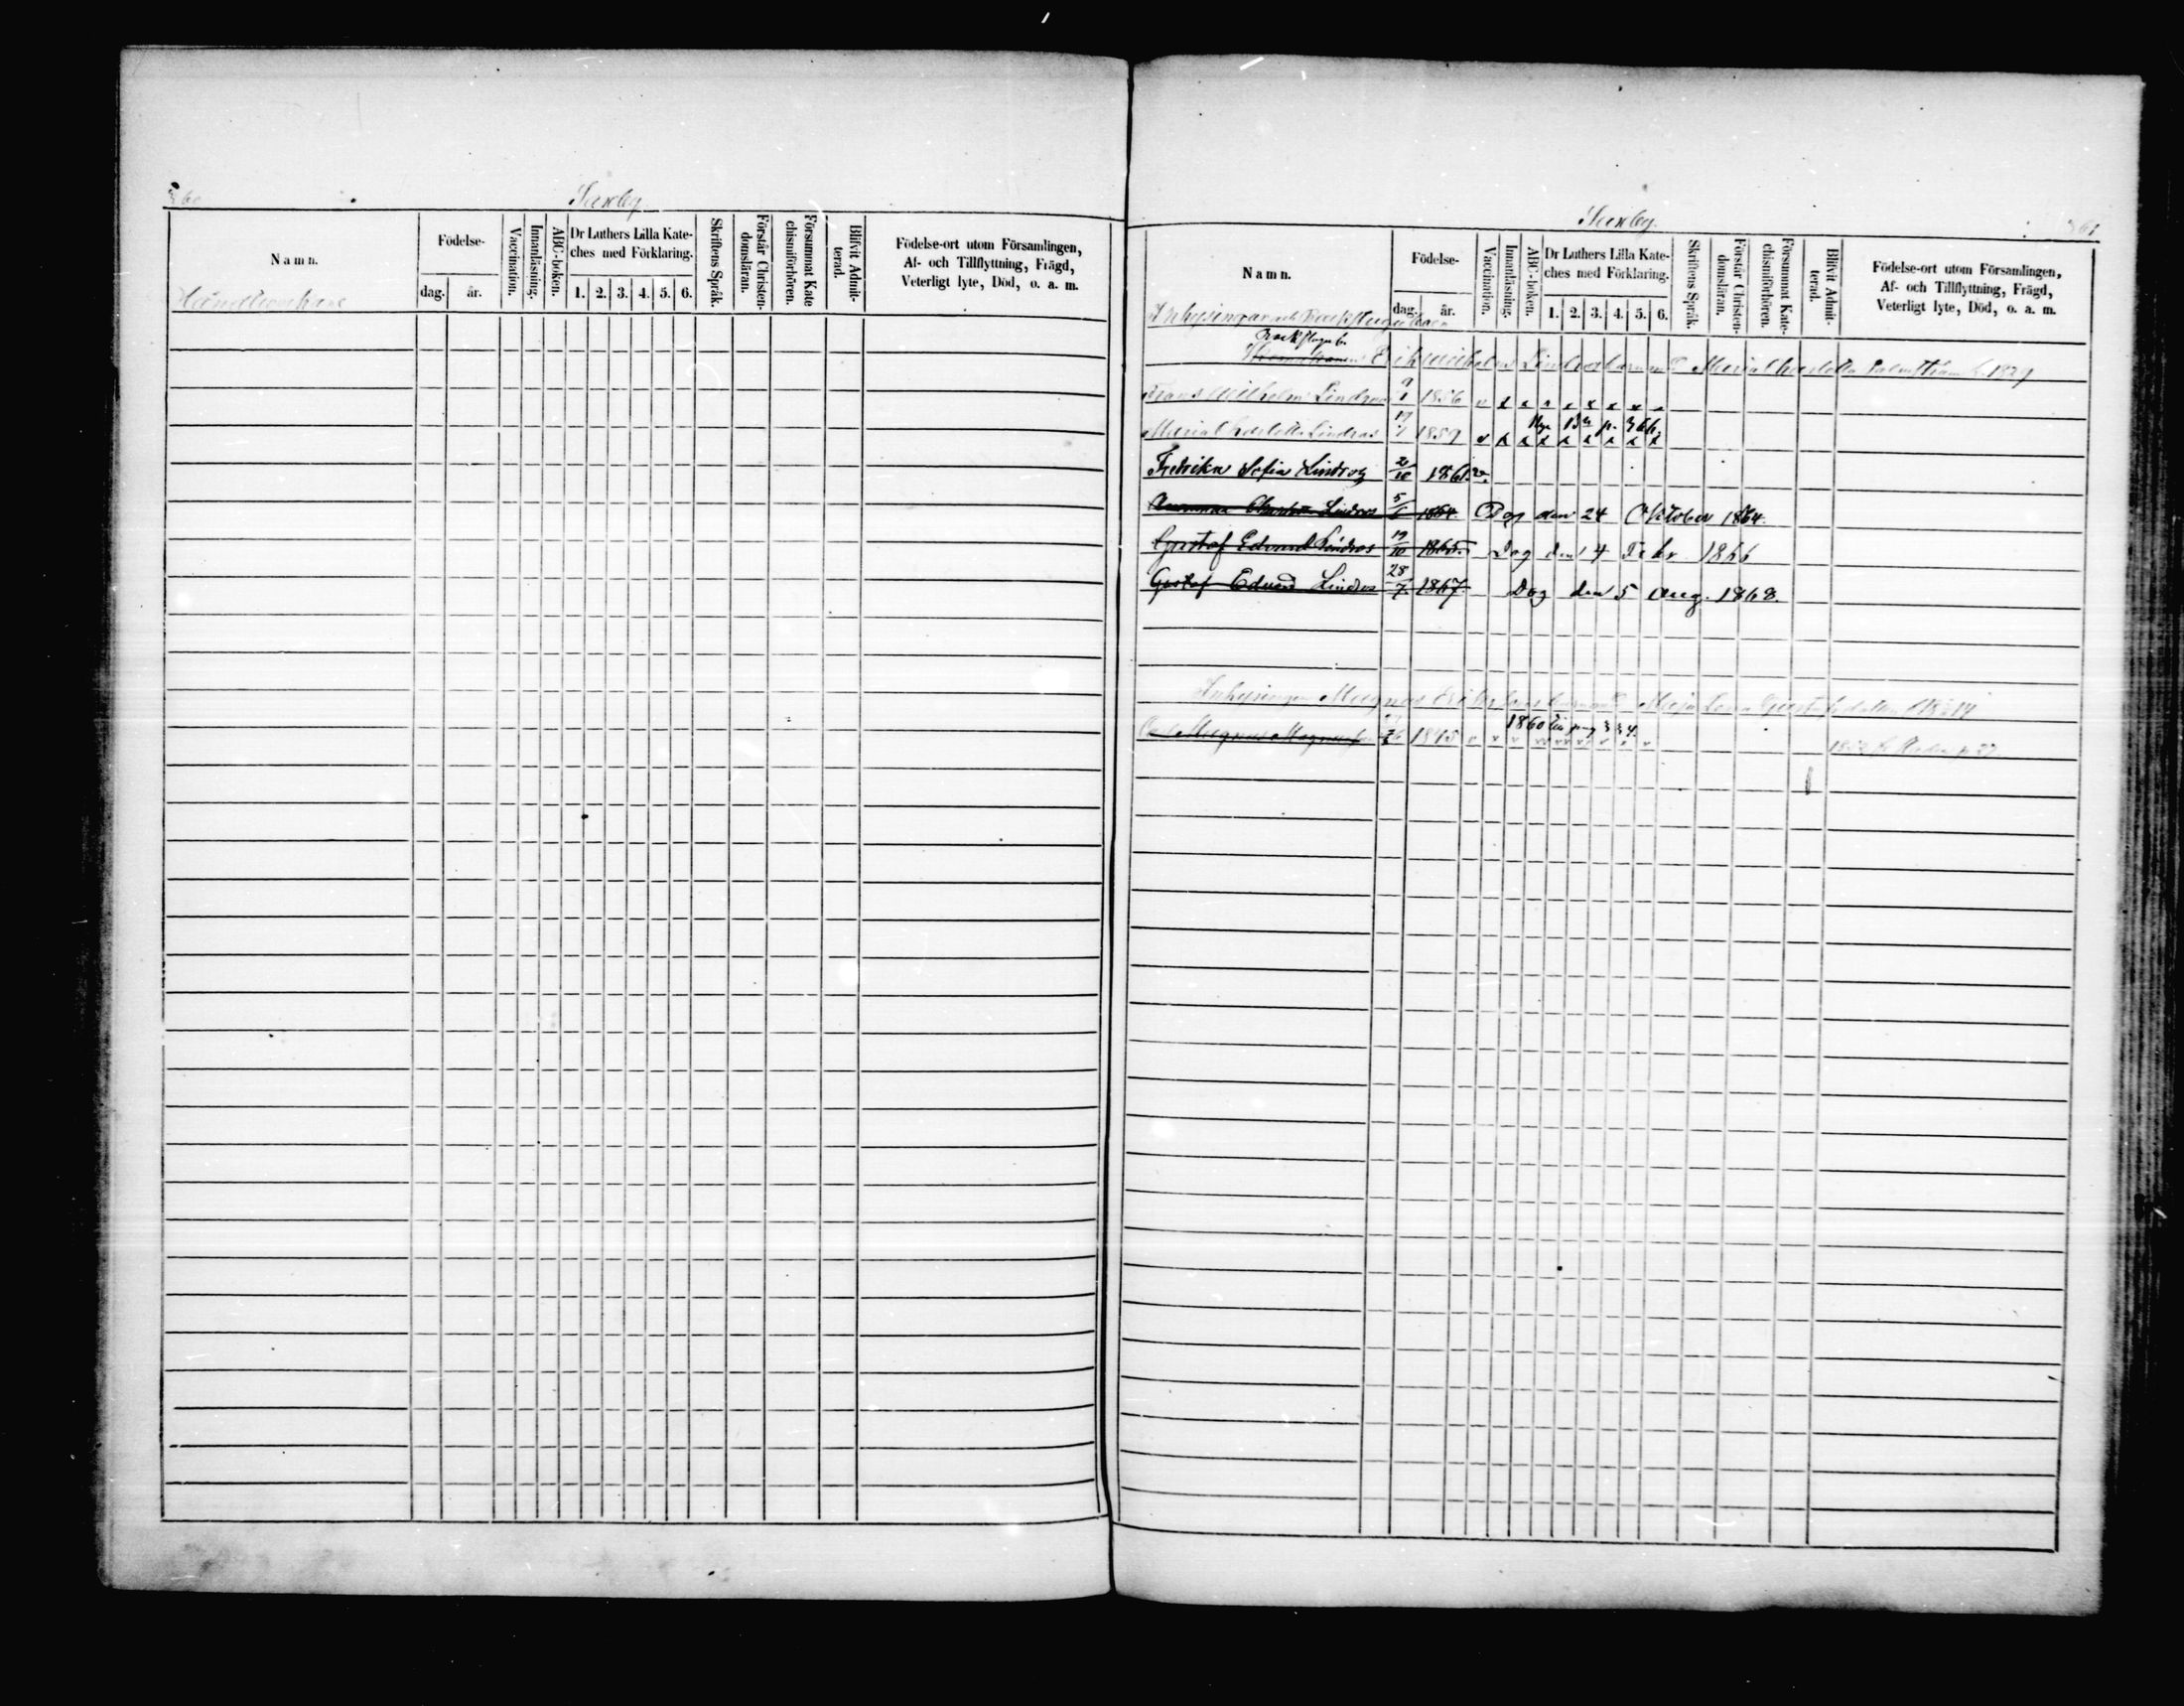 360
Saxby.
Namn.
Födelse-
dag. år.
Vaccination.
Innanläsning.
ABC-boken.
Dr Luthers Lilla Kate-
ches med Förklaring.
1. 2. 3. 4. 5. 6.
Skriftens Språk.
Förstår Christen-
domsläran.
Försummat Kate
chismiförhören.
Blifvit Admit-
terad.
Födelse-ort utom Församlingen,
Af- och Tillflyttning, Frägd,
Veterligt lyte, Död, o. a. m.
Saxby.
361
Namn.
Födelse-
dag. år.
Vaccination.
Innanläsning.
ABC-boken.
Dr Luthers Lilla Kate-
ches med Förklaring.
1. 2. 3. 4. 5. 6.
Skriftens Språk.
Förstår Christen-
domsläran.
Försummat Kate-
chismiförhören.
Blifvit Admit-
terad.
Födelse-ort utom Församlingen,
Af- och Tillflyttning, Frägd,
Veterligt lyte, Död, o. a. m.
Inhysingar och Backstugu
Erik Wilhelm Lindros barn m. Maria Charlotta Palmström f. 1829
Frans Wilhelm Lindros 1856
Maria Charlotta Lindros 1859
Fredrika Sofia Lindros 2/10 1861
Lindros 5/5 1864 Dog den 24 Oktober 1864.
Gustaf Edvard Lindros 19/10 1865 Dog den 4 Febr 1866
Gustaf Edvard Lindros 28/7 1867 Dog den 5 Aug. 1868.
Inhysingen Magnus Erikssons barn m. Maja Lena Gustafsdotter
Carl Magnus Magnusson 1845 1860